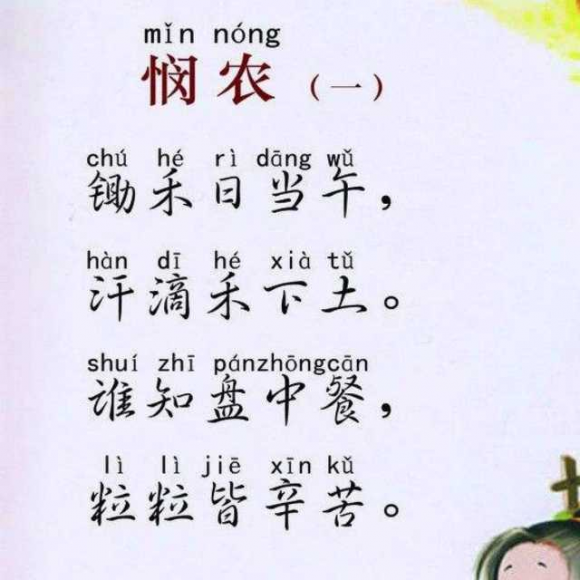 mǐn nóng
悯农（一）
chú hé rì dāng wǔ
锄禾日当午，
hàn dī hé xià tǔ
汗滴禾下土。
shuí zhī pánzhōngcān
谁知盘中餐，
lì lì jiē xīn kǔ
粒粒皆辛苦。